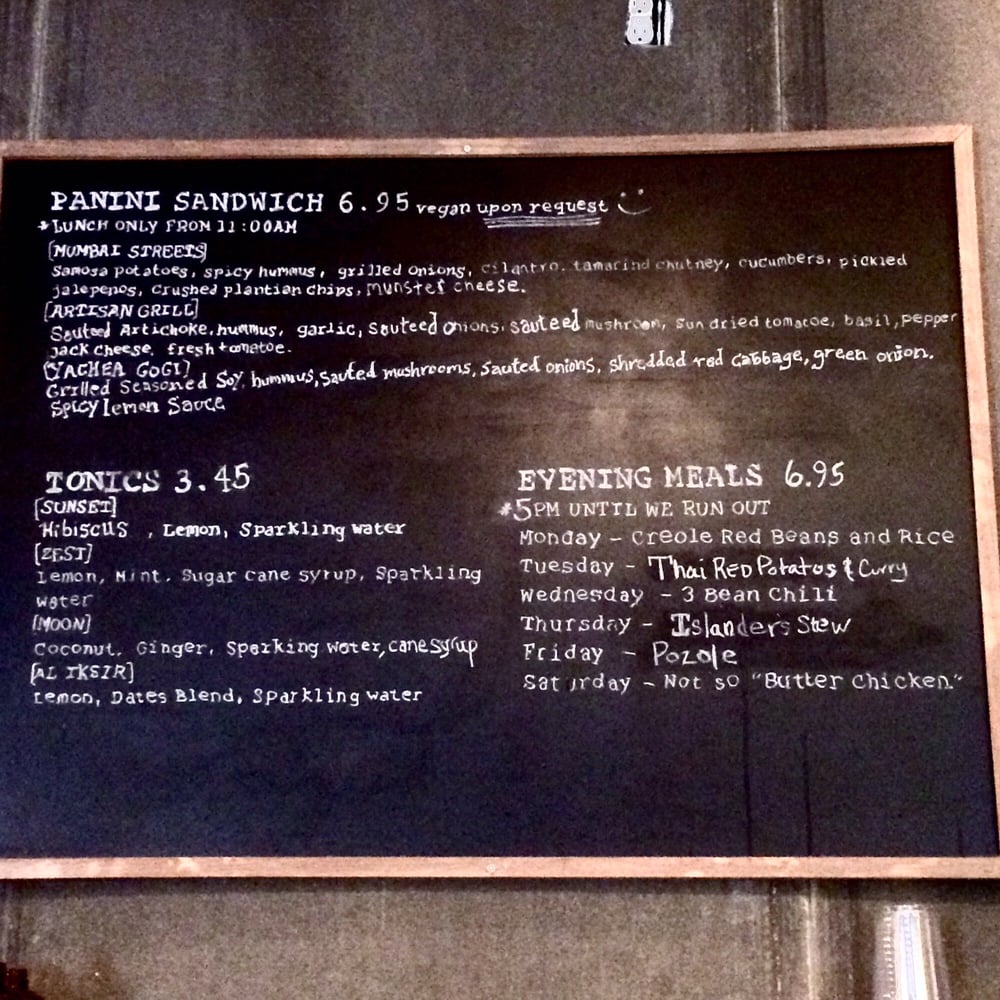 PANINI SANDWICH 6.95 vegan upon request
*LUNCH ONLY FROM 11:00AM
[MUMBAI STREETS]
Samosa potatoes, spicy hummus, grilled onions, cilantro, tamarind chutney, cucumbers, pickled
jalepenos, crushed plantian chips, munster cheese.
[ARTISAN GRILL]
Sauteed Artichoke, hummus, garlic, sauteed onions, sauteed mushroom, sun dried tomatoe, basil, pepper
jack cheese, fresh tomatoe.
[YACHEA GOGI]
Grilled Seasoned Soy, hummus, sauted mushrooms, sauted onions, shredded red cabbage, green onion.
Spicy lemon Sauce
TONICS 3.45
[SUNSET]
Hibiscus , Lemon, Sparkling water
[ZEST]
Lemon, Mint, Sugar cane syrup, Sparkling
water
[MOON]
Coconut, Ginger, Sparking water, cane syrup
[AL IKSIR]
Lemon, Dates Blend, Sparkling water
EVENING MEALS 6.95
*5PM UNTIL WE RUN OUT
Monday - Creole Red Beans and Rice
Tuesday - Thai Red Potatos & Curry
Wednesday - 3 Bean Chili
Thursday - Islanders Stew
Friday - Pozole
Saturday - Not so "Butter Chicken"